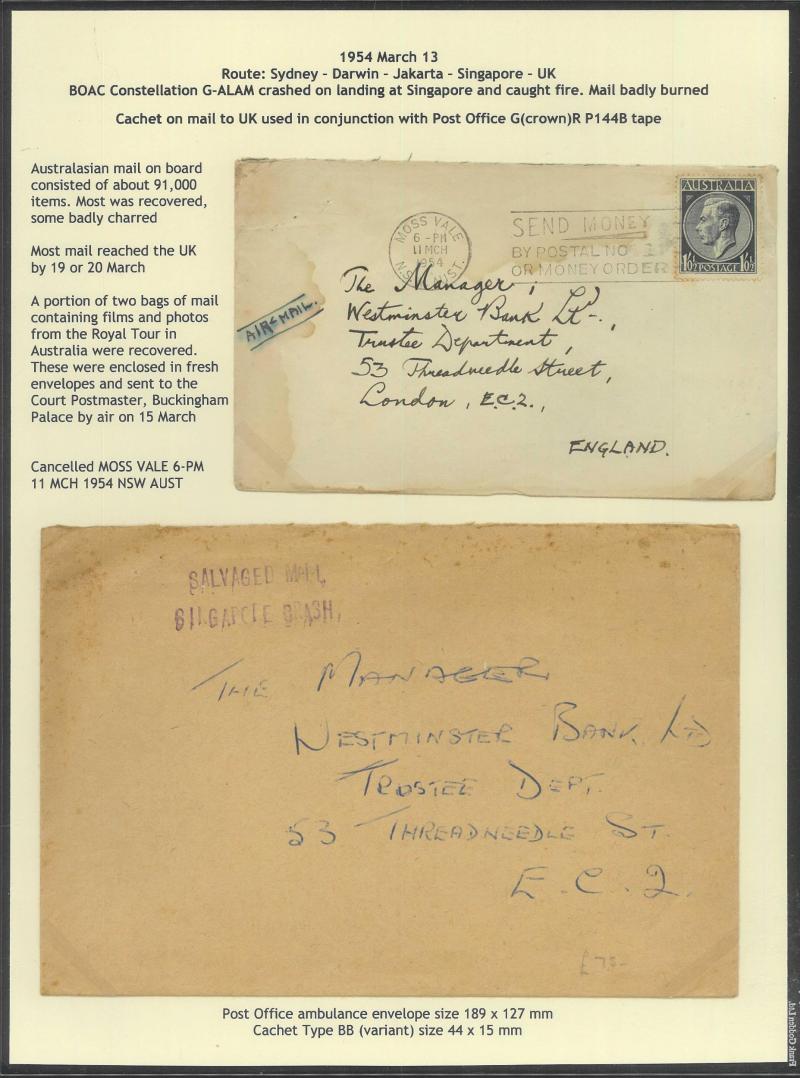 1954 March 13
Route: Sydney - Darwin - Jakarta - Singapore - UK
BOAC Constellation G-ALAM crashed on landing at Singapore and caught fire. Mail badly burned
Cachet on mail to UK used in conjunction with Post Office G(crown)R P144B tape
Australasian mail on board
consisted of about 91,000
items. Most was recovered,
some badly charred
Most mail reached the UK
by 19 or 20 March
A portion of two bags of mail
containing films and photos
from the Royal Tour in
Australia were recovered.
These were enclosed in fresh
envelopes and sent to the
Court Postmaster, Buckingham
Palace by air on 15 March
Cancelled MOSS VALE 6-PM
11 MCH 1954 NSW AUST
MOSS VALE
6 - PM
11 MCH
1954
N.S.W. AUST.
SEND MONEY
BY POSTAL NO
OR MONEY ORDER
AUSTRALIA
1/0½ POSTAGE 1/0½
AIR-MAIL.
The Manager,
Westminster Bank Ltd.,
Trustee Department,
53 Threadneedle Street,
London, E.C.2.,
ENGLAND.
SALVAGED MAIL,
SINGAPORE CRASH,
THE MANAGER
WESTMINSTER BANK, LTD
TRUSTEE DEPT.
53 THREADNEEDLE ST.
E.C.2.
£75-
Post Office ambulance envelope size 189 x 127 mm
Cachet Type BB (variant) size 44 x 15 mm